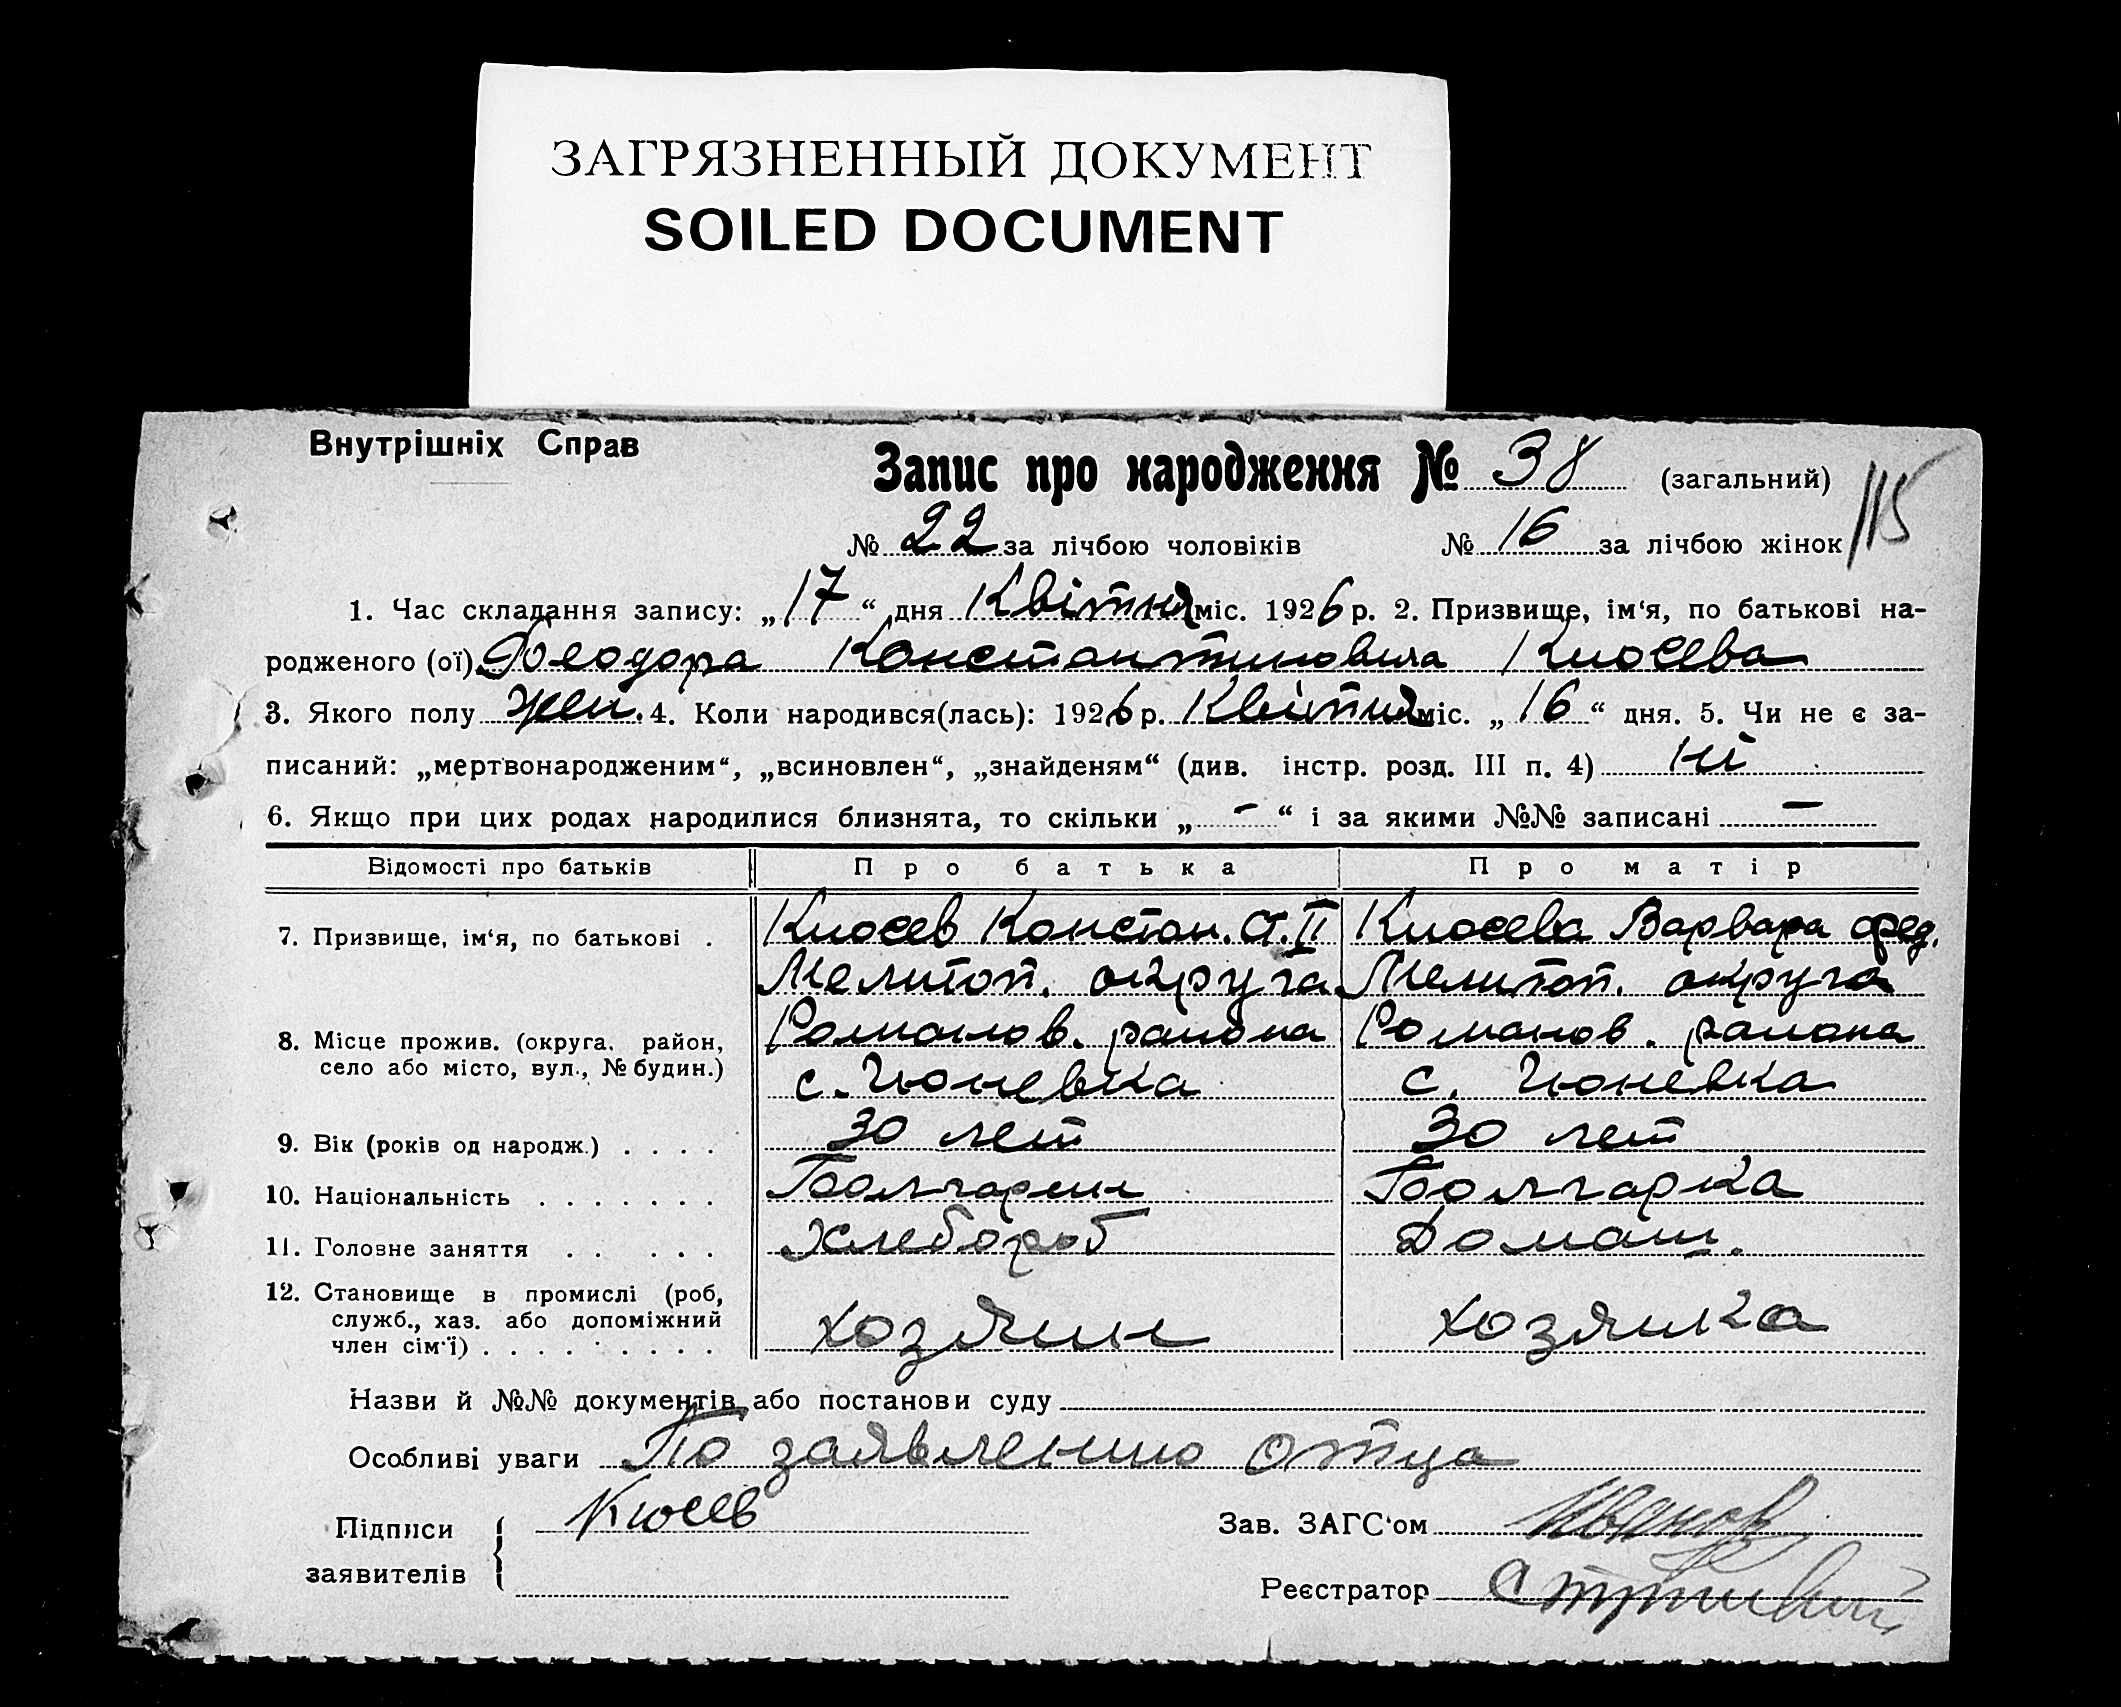 ЗАГРЯЗНЕННЫЙ ДОКУМЕНТ
SOILED DOCUMENT
Внутрішніх Справ
Запис про народження № 38 (загальний)
115
№ 22 за лічбою чоловіків № 16 за лічбою жінок
1. Час складання запису: „17“ дня Квітня міс. 1926 р. 2. Призвище, ім‘я, по батькові на-
родженого (ої) Феодора Константиновна Киосева
3. Якого полу жен. 4. Коли народився(лась): 1926 р. Квітня міс. „16“ дня. 5. Чи не є за-
писаний: „мертвонародженим“, „всиновлен“, „знайденям“ (див. інстр. розд. III п. 4) ні
6. Якщо при цих родах народилися близнята, то скільки „-“ і за якими №№ записані -
Відомості про батьків Про батька Про матір
7. Призвище, ім‘я, по батькові . Киосев Констан. Ст. II Киосева Варвара Фед.
Мелитоп. округа Мелитоп. округа
8. Місце прожив. (округа, район, Романов. района Романов. района
село або місто, вул., № будин.) с. Гюневка с. Гюневка
9. Вік (років од народж.) . . . . 30 лет 30 лет
10. Національність . . . . . . . Болгарин Болгарка
11. Головне заняття . . . . . Хлебороб Домаш.
12. Становище в промислі (роб,
служб., хаз. або допоміжний хозяин хозяйка
член сім‘ї) . . . . . . . . .
Назви й №№ документів або постанови суду
Особливі уваги По заявлению отца
Підписи Киосев Зав. ЗАГС‘ом Иванов
заявителів Реєстратор